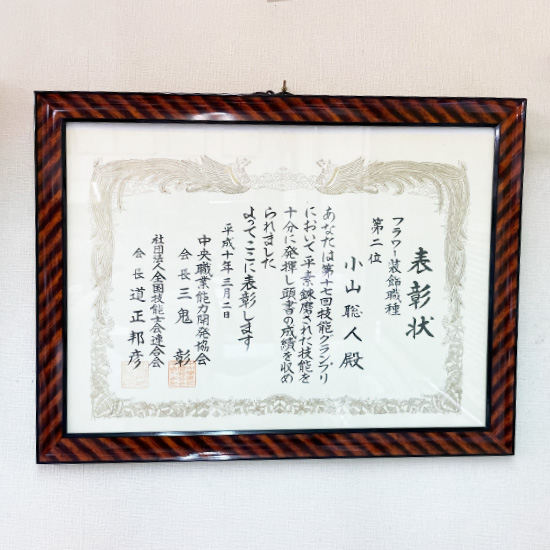 表彰状
フラワー装飾職種
第二位
小山聡人殿
あなたは第十七回技能グランプリ
において平素錬磨された技能を
十分に発揮し頭書の成績を収め
られました
よってここに表彰します
平成十年三月二日
中央職業能力開発協会
会長 三鬼彰
社団法人全国技能士会連合会
会長 道正邦彦